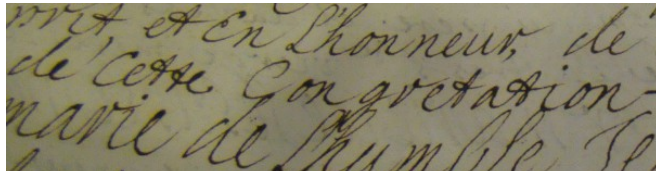 et en L'honneur, de
de cette Congretation
marie de L'humble